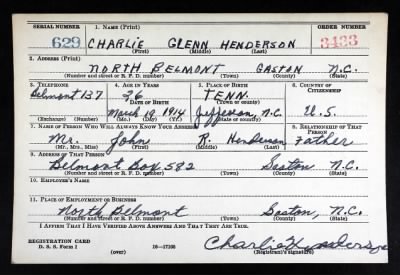 SERIAL NUMBER 1. NAME (Print) ORDER NUMBER
629 CHARLIE GLENN HENDERSON 3433
(First) (Middle) (Last)
2. ADDRESS (Print)
NORTH BELMONT GASTON N.C.
(Number and street or R. F. D. number) (Town) (County) (State)
3. TELEPHONE 4. AGE IN YEARS 5. PLACE OF BIRTH 6. COUNTRY OF CITIZENSHIP
Belmont 137 26 TENN.
DATE OF BIRTH (Town or county)
March 19 1914 Jefferson, N.C. U.S.
(Exchange) (Number) (Mo.) (Day) (Yr.) (State or country)
7. NAME OF PERSON WHO WILL ALWAYS KNOW YOUR ADDRESS 8. RELATIONSHIP OF THAT PERSON
Mr. John R. Henderson Father
(Mr., Mrs., Miss) (First) (Middle) (Last)
9. ADDRESS OF THAT PERSON
Belmont Box 582 Gaston N.C.
(Number and street or R. F. D. number) (Town) (County) (State)
10. EMPLOYER'S NAME
11. PLACE OF EMPLOYMENT OR BUSINESS
North Belmont Gaston, N.C.
(Number and street or R. F. D. number) (Town) (County) (State)
I AFFIRM THAT I HAVE VERIFIED ABOVE ANSWERS AND THAT THEY ARE TRUE.
REGISTRATION CARD
D. S. S. Form 1 (over) 16—17105 Charlie Henderson
(Registrant's signature)